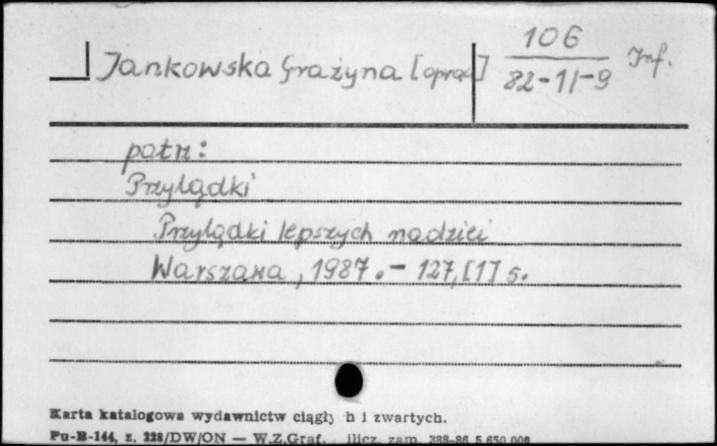 Jankowska Grażyna [oprac] 106
82-11-9 Inf.
patrz:
Przylądki
Przylądki lepszych nadziei
Warszawa, 1987.- 127,[1] s.
Karta katalogowa wydawnictw ciągły h i zwartych.
Pu-B-144, z. 228/DW/ON — W.Z.Graf. zam. 388-86 5.650.000